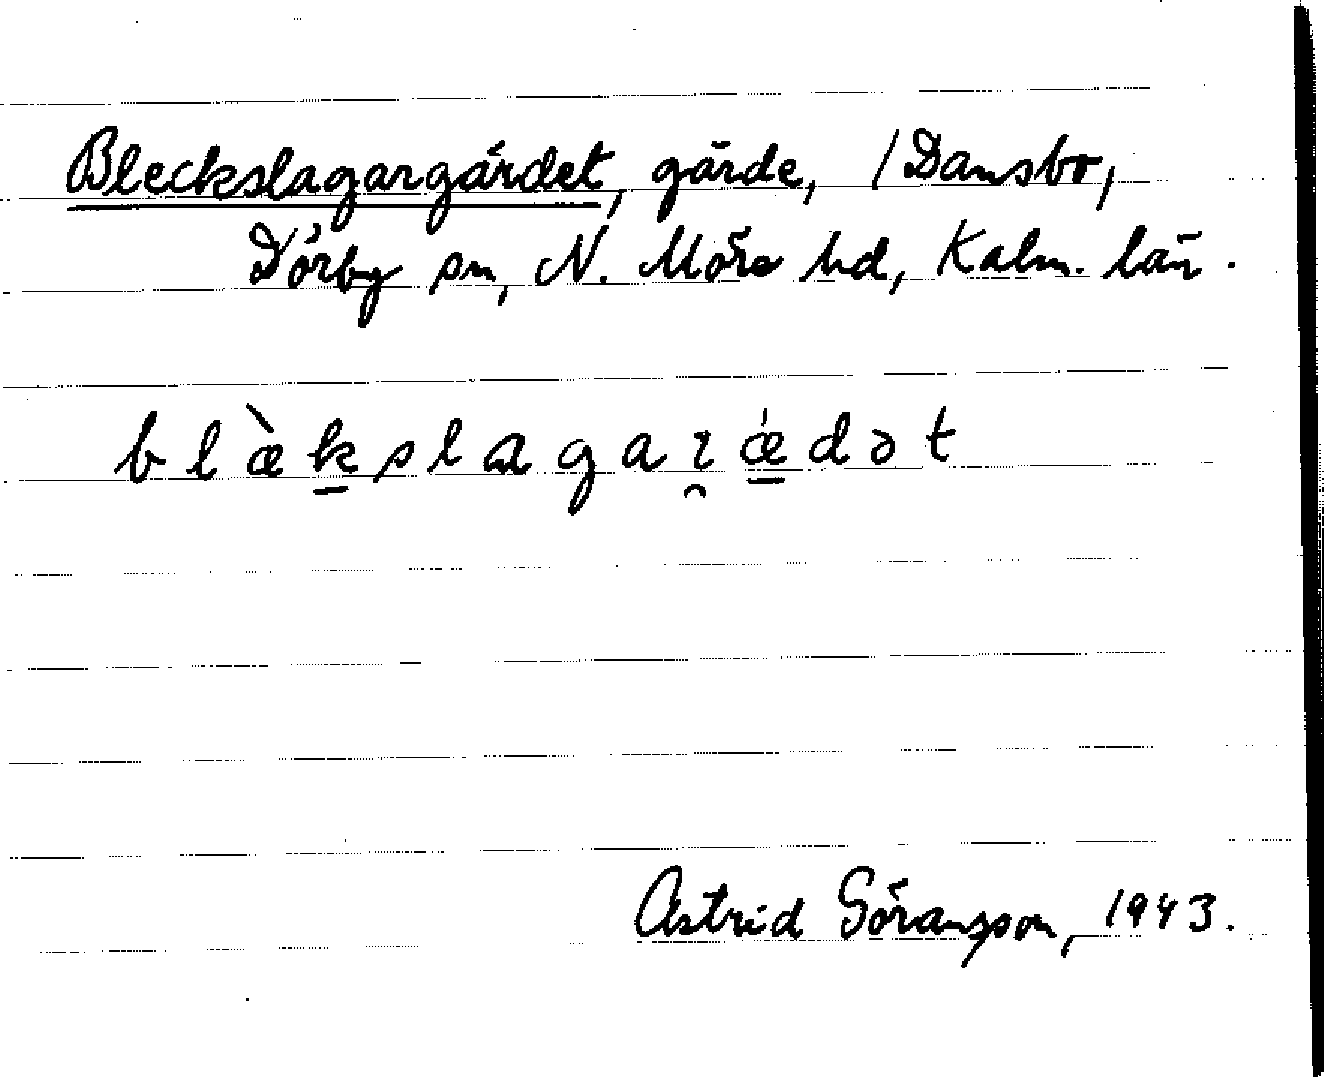 Bleckslagargärdet, gärde, /Dansbo,
Dörby sn, N. Möre hd, Kalm. län.
blæ̀k̲slagaɿ̯ǽ̲dət
Astrid Göransson, 1943.